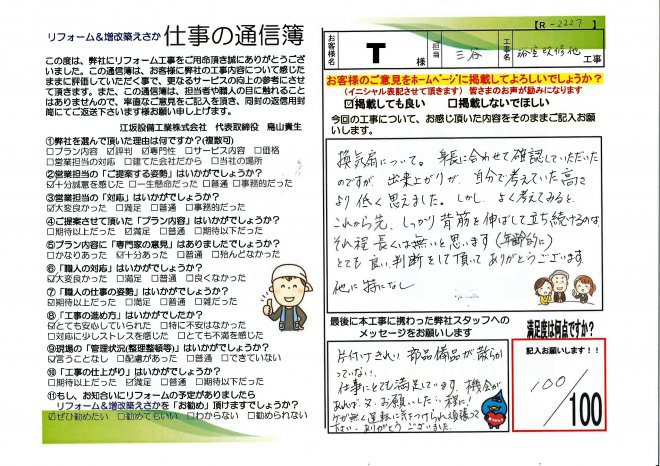 リフォーム&増改築えさか 仕事の通信簿
この度は、弊社にリフォーム工事をご用命頂き誠にありがとうござ
いました。この通信簿は、お客様に弊社の工事内容について感じた
ままに評価していただく事で、更なるサービスの向上の参考にさせ
て頂きます。また、この通信簿は、担当者や職人の目に触れること
はありませんので、率直なご意見をご記入を頂き、同封の返信用封
筒にてご返送下さいます様お願い申し上げます。
江坂設備工業株式会社 代表取締役 鳥山貴生
①弊社を選んで頂いた理由は何ですか?(複数可)
□プラン内容 ☑評判 ☑専門性 □サービス内容 □価格
□営業担当の対応 □建てた会社だから □当社の場所
②営業担当の「ご提案する姿勢」はいかがでしょうか?
☑十分誠意を感じた □一生懸命だった □普通 □事務的だった
③営業担当の「対応」はいかがでしょうか?
☑大変良かった □満足 □普通 □事務的だった
④ご提案させて頂いた「プラン内容」はいかがでしょうか?
□期待以上だった ☑満足 □普通 □期待以下だった
⑤プラン内容に「専門家の意見」はありましたでしょうか?
□かなりあった ☑十分あった □普通 □殆んどなかった
⑥「職人の対応」はいかがでしょうか?
☑大変良かった □満足 □普通 □良くなかった
⑦「職人の仕事の姿勢」はいかがでしょうか?
☑期待以上だった □満足 □普通 □雑だった
⑧「工事の進め方」はいかがでしたか?
☑とても安心していられた □特に不安はなかった
□対応に少しストレスを感じた □とても不満を感じた
⑨現場の「管理状況(整理整頓等)」はいかがでしょうか?
☑言うことなし □配慮があった □普通 □できていない
⑩「工事の仕上がり」はいかがでしょうか?
□期待以上だった ☑満足 □普通 □期待以下だった
⑪もし、お知合いにリフォームの予定がありましたら
リフォーム&増改築えさかを「お勧め」頂けますでしょうか?
☑ぜひ勧めたい □勧めてもいい □わからない □勧められない
【R-2227】
お客様名 T 様 担当 三谷 工事名 浴室改修他 工事
お客様のご意見をホームページに掲載してよろしいでしょうか?
(イニシャル表記させて頂きます)皆さまのお声が励みになります
☑掲載しても良い □掲載しないでほしい
今回の工事について、お感じ頂いた内容をそのままご記入お願
いします。
換気扇について。身長に合わせて確認していただいた
のですが、出来上りが、自分で考えていた高さ
より低く思えました。しかし、よく考えてみると、
これから先、しっかり背筋を伸ばして立ち続けるのは、
それ程長くは無いと思います(年齢的に)
とても良い判断をして頂いてありがとうございます
他に特になし
最後に本工事に携わった弊社スタッフへ
のメッセージをお願いします
片付けきれい 部品備品が散らか
っていない、
仕事にとても満足しています。機会が
あれば、又、お願いしたい程に!
ケガ無く運転に気をつけられ頑張って
下さい。ありがとうございました。
満足度は何点ですか?
記入お願いします!!
100
/100